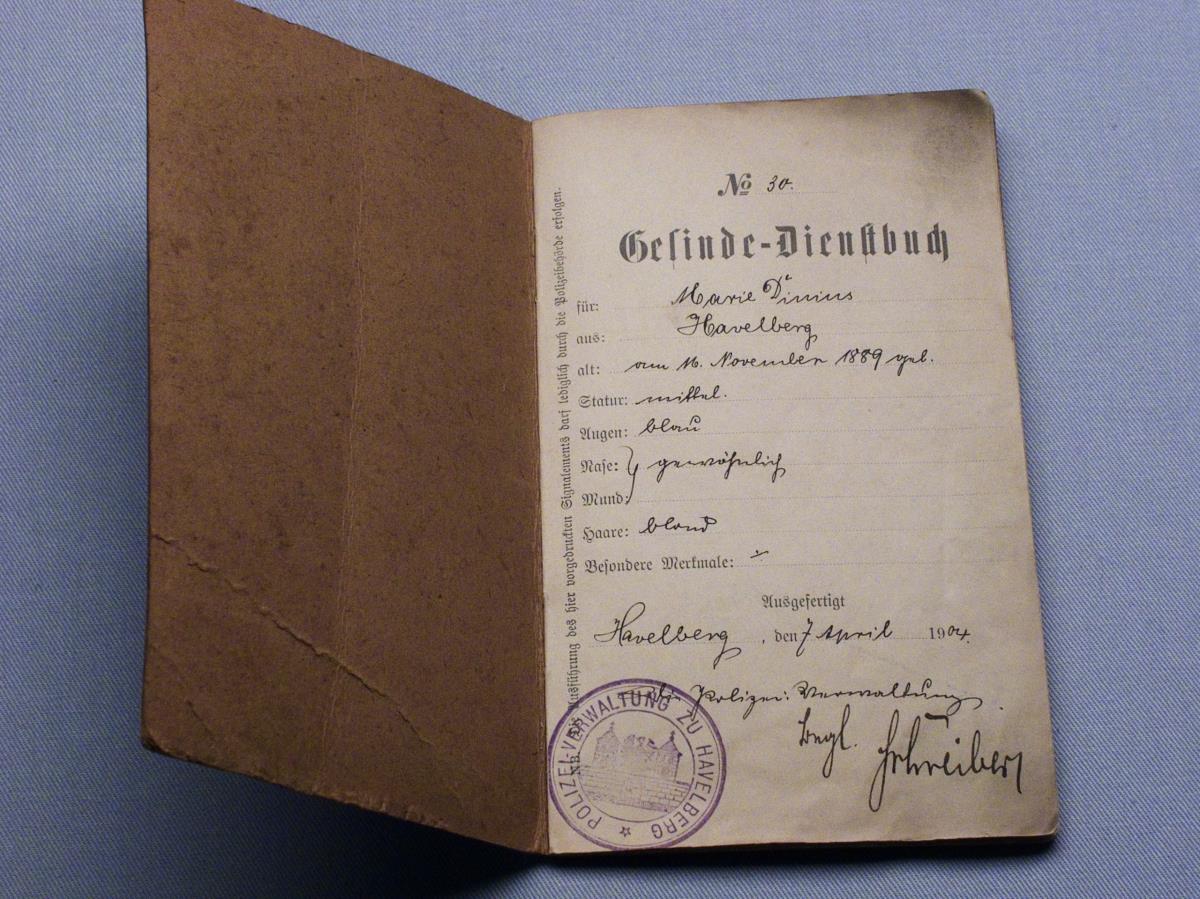 No 30.
Gesinde-Dienstbuch
für: Marie Dinius
aus: Havelberg
alt: am 16. November 1889 geb.
Statur: mittel.
Augen: blau
Nase: } gewöhnlich
Mund:
Haare: blond
Besondere Merkmale: ∸
Ausgefertigt
Havelberg, den 7 April 1904.
Die Polizei-Verwaltung.
Schreiber
NB. Die Ausführung des hier vorgedruckten Signalements darf lediglich durch die Polizeibehörde erfolgen.
POLIZEI-VERWALTUNG ZU HAVELBERG